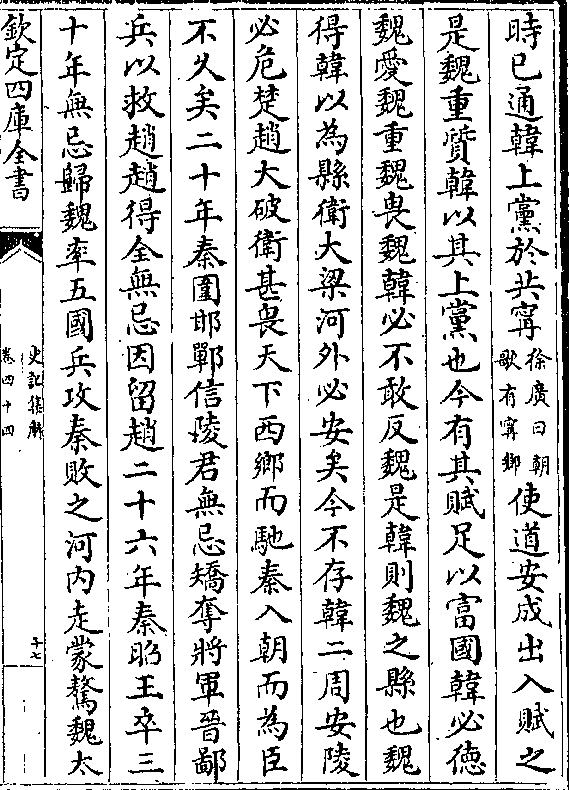 時已通韓上黨於共甯徐廣曰朝歌有甯鄉使道安成出入賦之
是魏重質韓以其上黨也今有其賦足以富國韓必德
魏愛魏重魏畏魏韓必不敢反魏是韓則魏之縣也魏
得韓以為縣衛大梁河外必安矣今不存韓二周安陵
必危楚趙大破衛甚畏天下西鄉而馳秦入朝而為臣
不久矣二十年秦圍邯鄲信陵君無忌矯奪將軍晉鄙
兵以救趙趙得全無忌因留趙二十六年秦昭王卒三
十年無忌歸魏率五國兵攻秦敗之河内走蒙驁魏太
欽定四庫全書
史記集解
卷四十四
十七